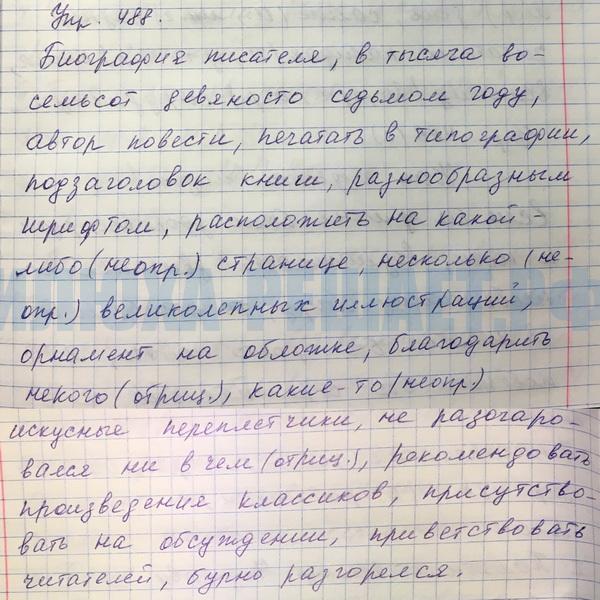 Упр. 488.
Биография писателя, в тысяча во-
семьсот девяносто седьмом году,
автор повести, печатать в типографии,
подзаголовок книги, разнообразным
шрифтом, расположить на какой-
либо (неопр.) странице, несколько (не-
опр.) великолепных иллюстраций,
орнамент на обложке, благодарить
некого (отриц.), какие-то (неопр.)
искусные переплетчики, не разочаро-
вался ни в чем (отриц.), рекомендовать
произведения классиков, присутство-
вать на обсуждении, приветствовать
читателей, бурно разгорелся.